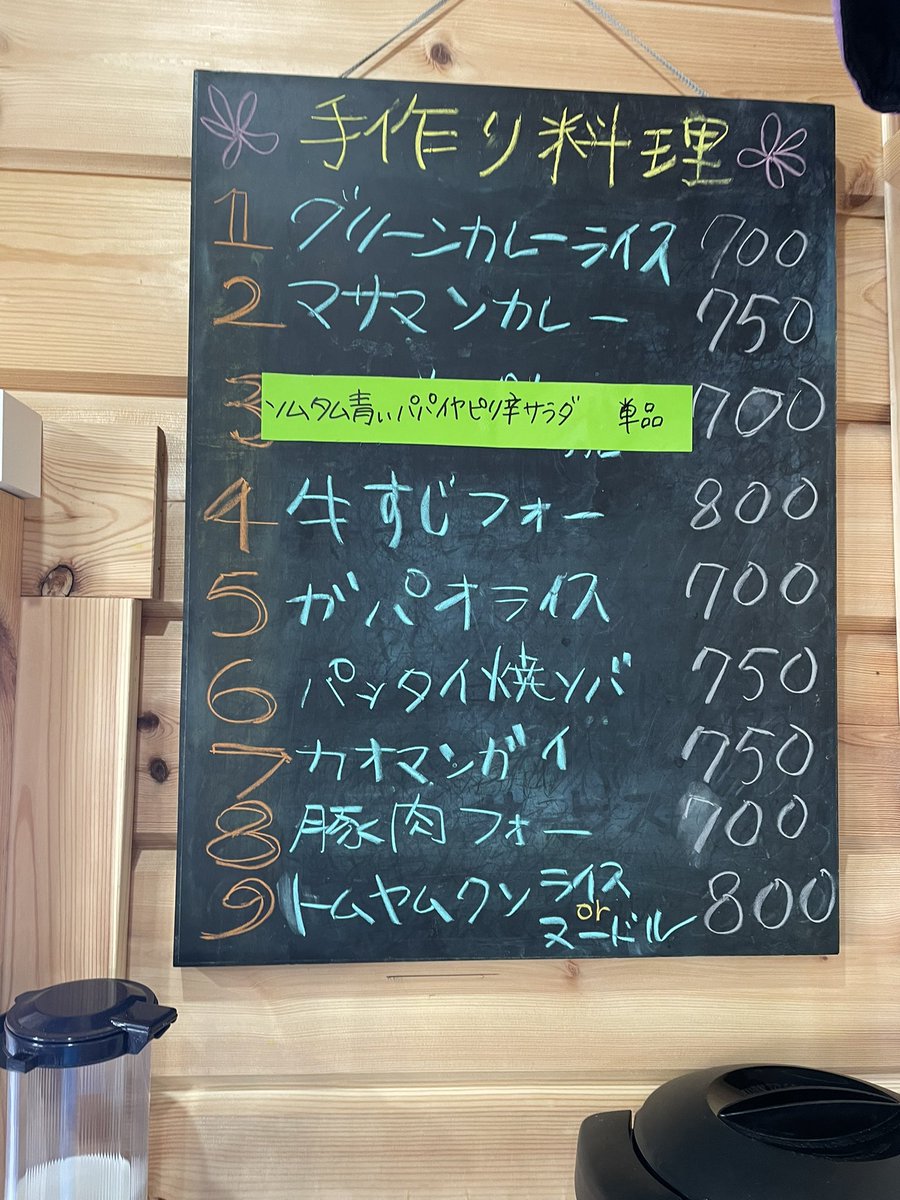 手作り料理
1 グリーンカレーライス 700
2 マサマンカレー 750
3 ソムタム青いパパイヤピリ辛サラダ 単品 700
4 牛すじフォー 800
5 ガパオライス 700
6 パッタイ焼ソバ 750
7 カオマンガイ 750
8 豚肉フォー 700
9 トムヤムクン ライス or ヌードル 800